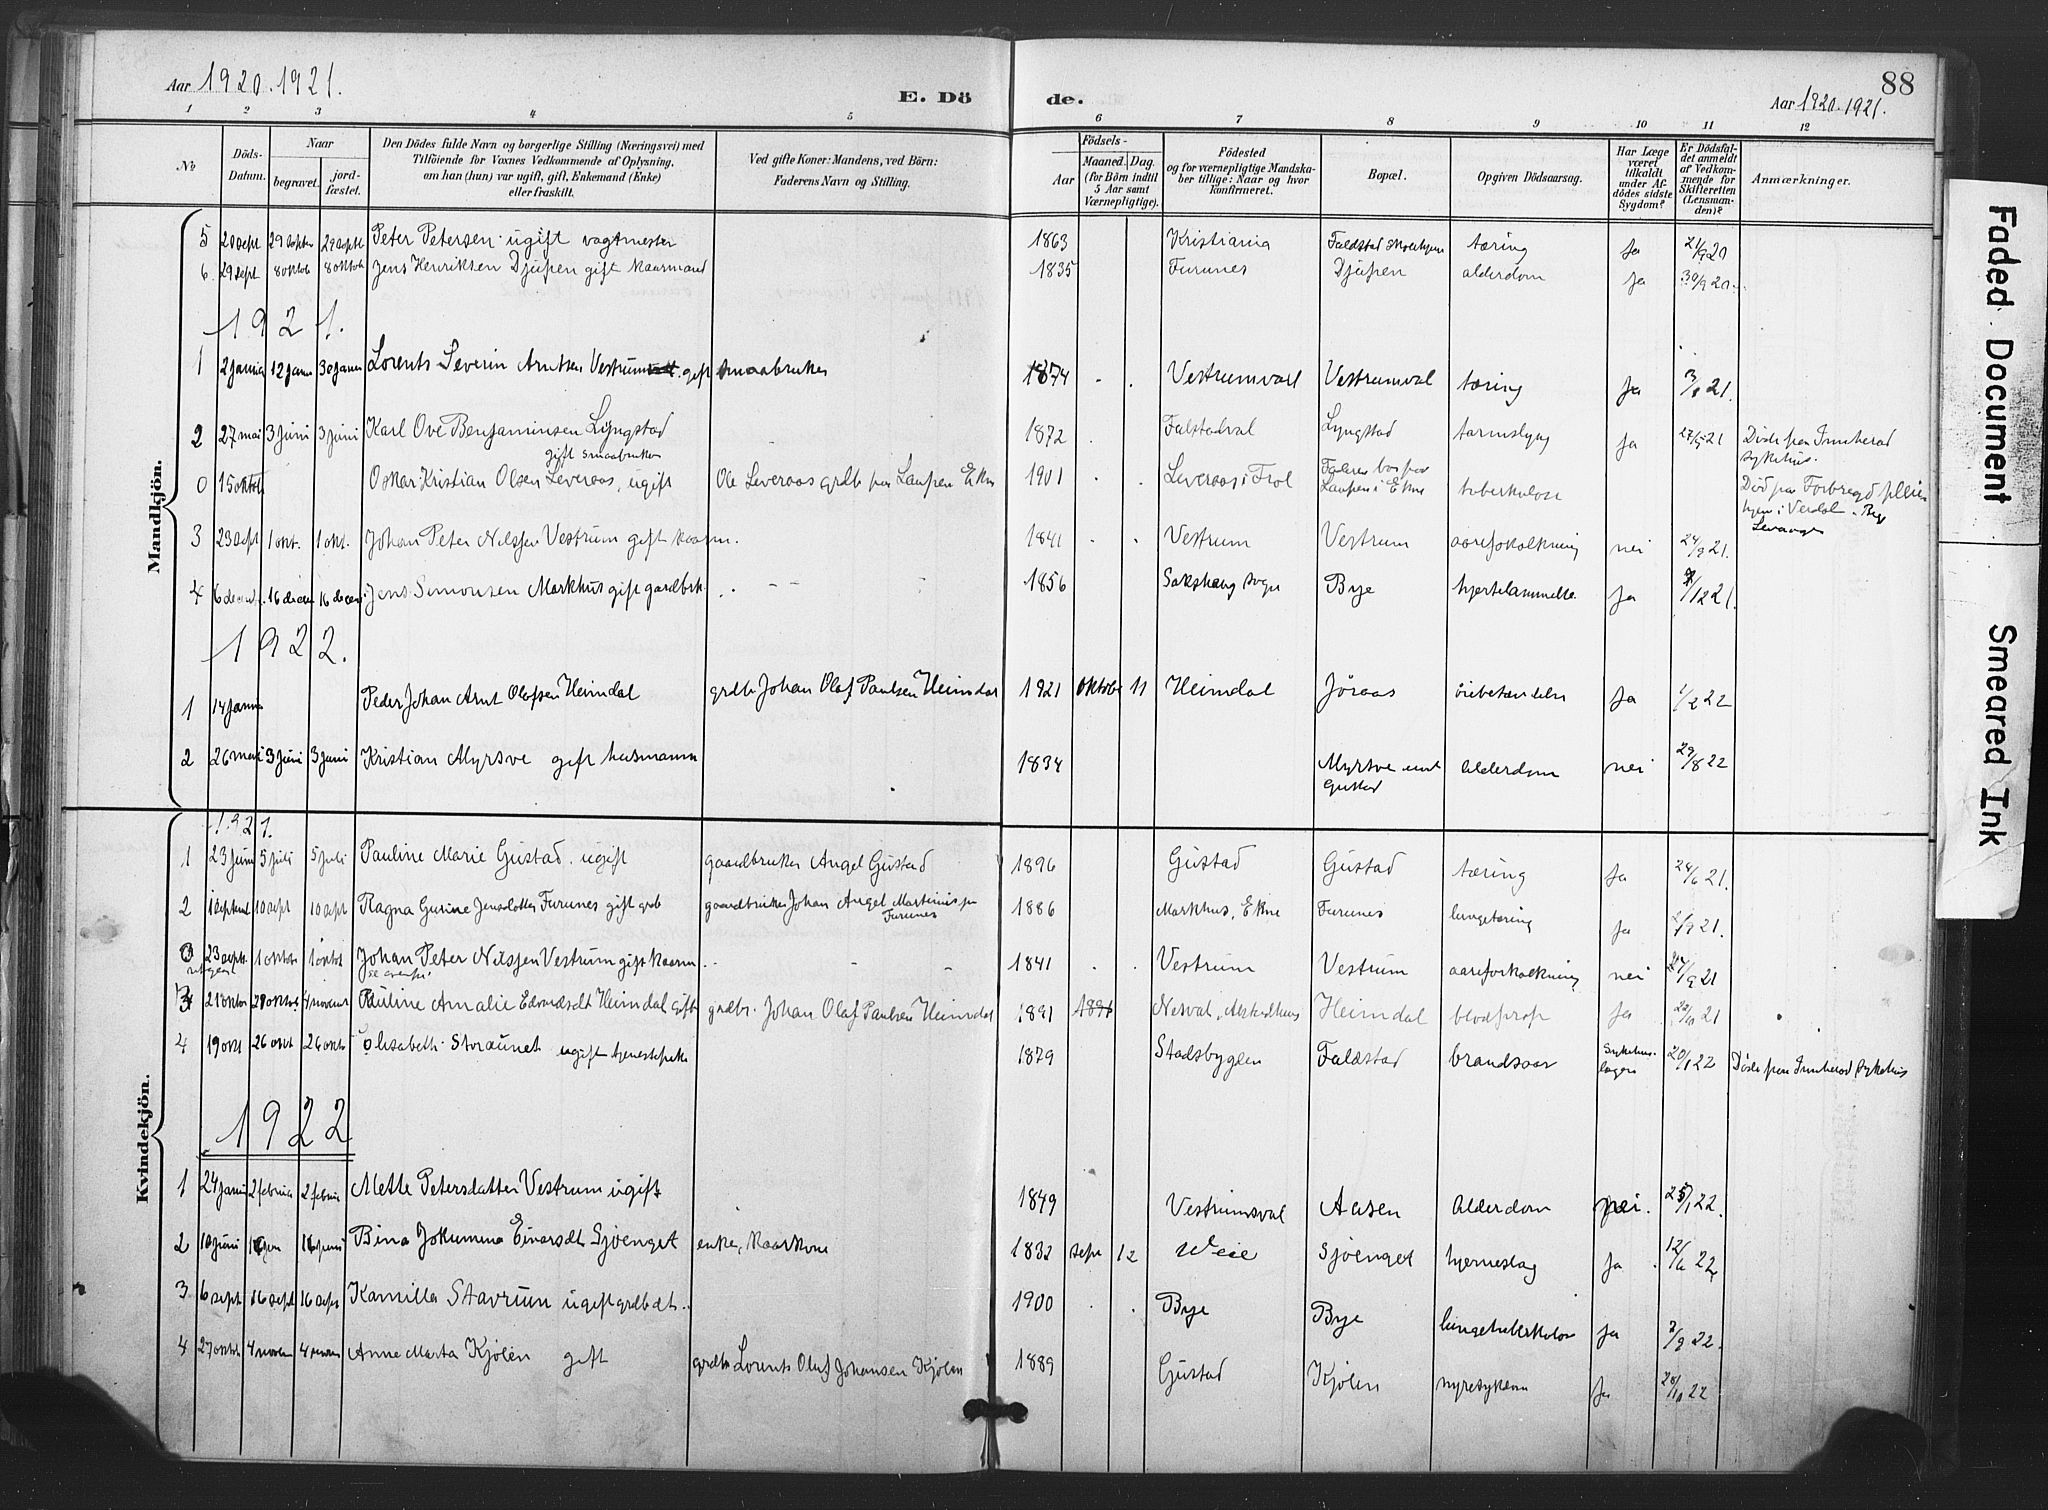 Aar 1920. 1921.
E. Dö de.
88
Aar 1920. 1921.
1 2 3 4 5 6 7 8 9 10 11 12
No
Döds-Datum.
Naar
begravet.
jord-fæstet.
Den Dödes fulde Navn og borgerlige Stilling (Næringsvei) med
Tilföiende for Voxnes Vedkommende af Oplysning,
om han (hun) var ugift, gift, Enkemand (Enke)
eller fraskilt.
Ved gifte Koner: Mandens, ved Börn:
Faderens Navn og Stilling.
Födsels-
Aar
Maaned. Dag.
(for Börn indtil
5 Aar samt
Værnepligtige).
Födested
og for værnepligtige Mandska-
ber tillige: Naar og hvor
konfirmeret.
Bopæl.
Opgiven Dödsaarsag.
Har Læge
været
tilkaldt
under Af-
dödes sidste
Sygdom?
Er Dödsfal-
det anmeldt
af Vedkom-
mende for
Skifteretten
(Lensman-
den)?
Anmærkninger.
Mandkjön.
5 20 sept 29 septbr 29 septb Peter Petersen ugift vagtmester 1863 Kristiania Falstad skolehjem tæring ja 21/9 20
6. 29 sept. 8 oktob 8 oktob Jens Henriksen Djupen gift kaarmand 1835 Furunes Djupen alderdom ja 30/9 20.
1921.
1 2 januar 12 janu 30 januar Lorents Severin Arntsen Vestrum gift smaabruker 1874 Vestrumsval Vestrumval tæring ja 3/1 21.
2 27 mai 3 juni 3 juni Karl Ove Benjaminsen Lyngstad 1872 Falstadval Lyngstad tarmslyng ja 27/5 21 Døde paa Innherad
gift smaabruker sykehus.
0 15 oktob Oskar Kristian Olsen Leveraas, ugift Ole Leveraas grdb paa Laupen Ekne 1901 Leveraas i Frol Faderen bor paa Laupen i Ekne tuberkulose Død paa Forbregd pleie
hjem i Verdal. Beg
Levanger
3 23 sept 1 okt. 1 okt. Johan Peter Nilssen Vestrum gift kaarm. 1841 Vestrum Vestrum aareforkalkning nei 24/9 21.
4 6 decemb. 16 decem 16 decem Jens Simonsen Markhus gift gardbrk. 1856 Sakshaug sogn Bye hjertelammelse. ja 7/12 21.
1922.
1 14 janua Peder Johan Arnt Olafsen Heimdal grdb. Johan Olaf Paulsen Heimdal 1921 oktobe 11 Heimdal Jøraas ørebetændelse ja 1/2 22
2 26 mai 3 juni 3 juni Kristian Myrsve gift husmann 1834 Myrsve unt Gustad alderdom nei 29/8 22
Kvindekjön.
1921.
1 23 juni 5 juli 5 juli Pauline Marie Gustad. ugift gaardbruker Angel Gustad 1896 Gustad Gustad tæring ja 24/6 21.
2 1 septemb 10 sept 10 sept Ragna Gurine Jensdatter Furunes gift grdb gaardbruker Johan Angel Martinius paa Furunes 1886 Markhus, Ekne Furunes lungetæring ja 2/9 21.
23 septb. 1 oktob 1 oktob Johan Peter Nilssen Vestrum gift kaarm 1841 Vestrum Vestrum aareforkalkning nei 24/9 21
se ovenfor
3 21 oktob 29 oktob 4 novemb Pauline Amalie Edvardsdt Heimdal gift grdbr. Johan Olaf Paulsen Heimdal 1891 Nesval, Alstadhaug Heimdal blodprop ja 22/10 21
4 19 okt 26 okt 26 oktb Elisabeth Storaunet ugift tjenestepike 1879 Stadsbygden Falstad brandsaar Sykehus-lægen 20/1 22 Døde paa Innherad sykehus
1922
1 24 janu 2 februa 2 februa Mette Petersdatter Vestrum ugift 1849 Vestrumsval Aasen alderdom nei. 25/1 22.
2 10 juni 16 jun 16 juni Bina Jokumina Einarsdt Sjøenget enke, kaarkone 1832 sept 12 Weie Sjøenget hjerneslag ja 12/6 22
3 6 sept 16 sept 16 sept Kamilla Stavrum ugift grdb dt. 1900 Bye Bye lungetuberkulose ja 7/9 22.
4 27 oktb 4 novem 4 novem Anne Marta Kjølen gift grdb Lorents Oluf Johansen Kjølen 1889 Gustad Kjølen nyresykdom ja 28/10 22
Faded Document
Smeared Ink